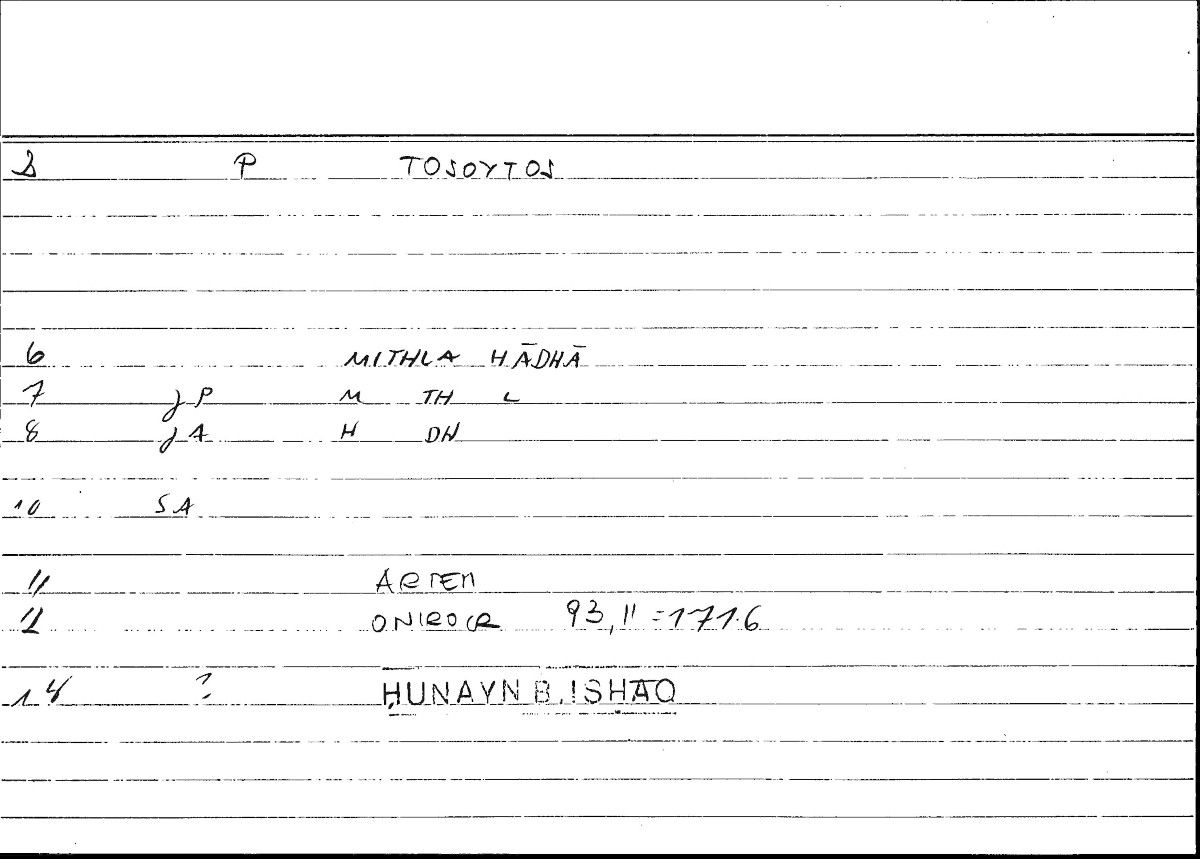 P TOSOYTOS
6 MITHLA HĀDHĀ
7 JP M TH L
8 JA H DH
10 SA
11 ARTEM
12 ONIROCR 93,11 = 171.6
14 ? ḤUNAYN B. ISḤĀQ